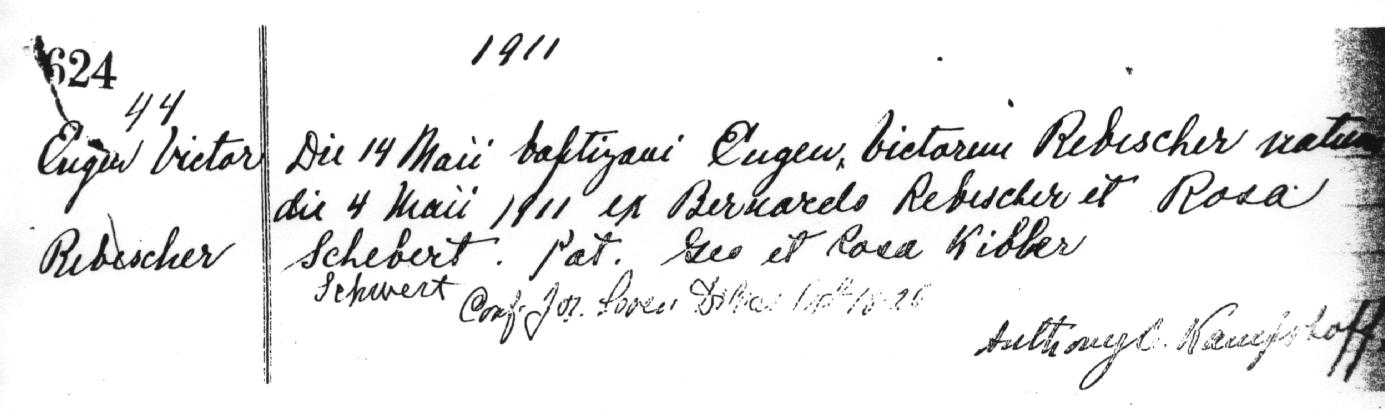 1911
624
44
Eugen Victor
Rebischer
Die 14 Maii baptizavi Eugen, Victorem Rebischer natum
die 4 Maii 1911 ex Bernardo Rebischer et Rosa
Schebert. Pat. Geo et Rosa Kibber
Schwert
Conf. Jos.
Anthony C. Kampshoff.